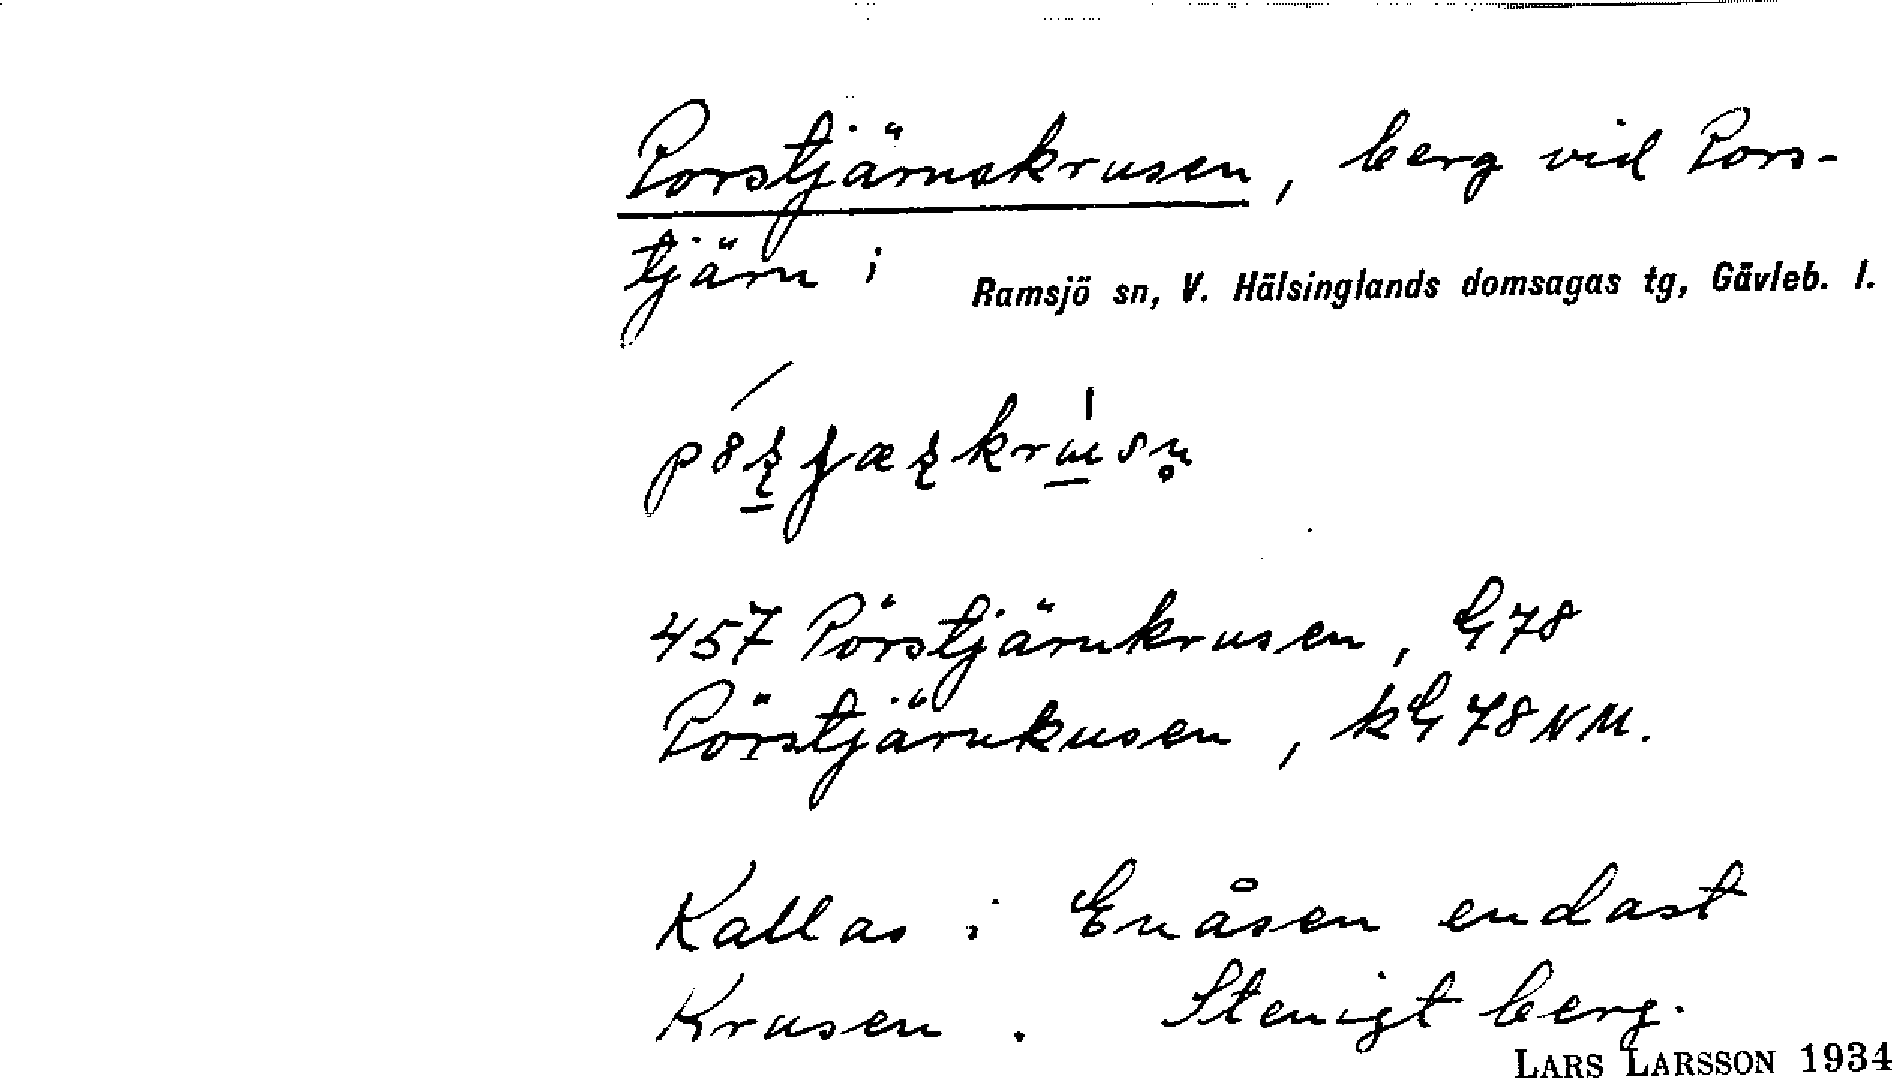 Porstjärnskrusen, berg vid Pors-
tjärn i Ramsjö sn, V. Hälsinglands domsagas tg, Gävleb. l.
457 Pörstjärnkrusen, G78
Pörstjärnkusen, kG78NM.
Kallas i Enåsen endast
Krusen. Stenigt berg.
LARS LARSSON 1934